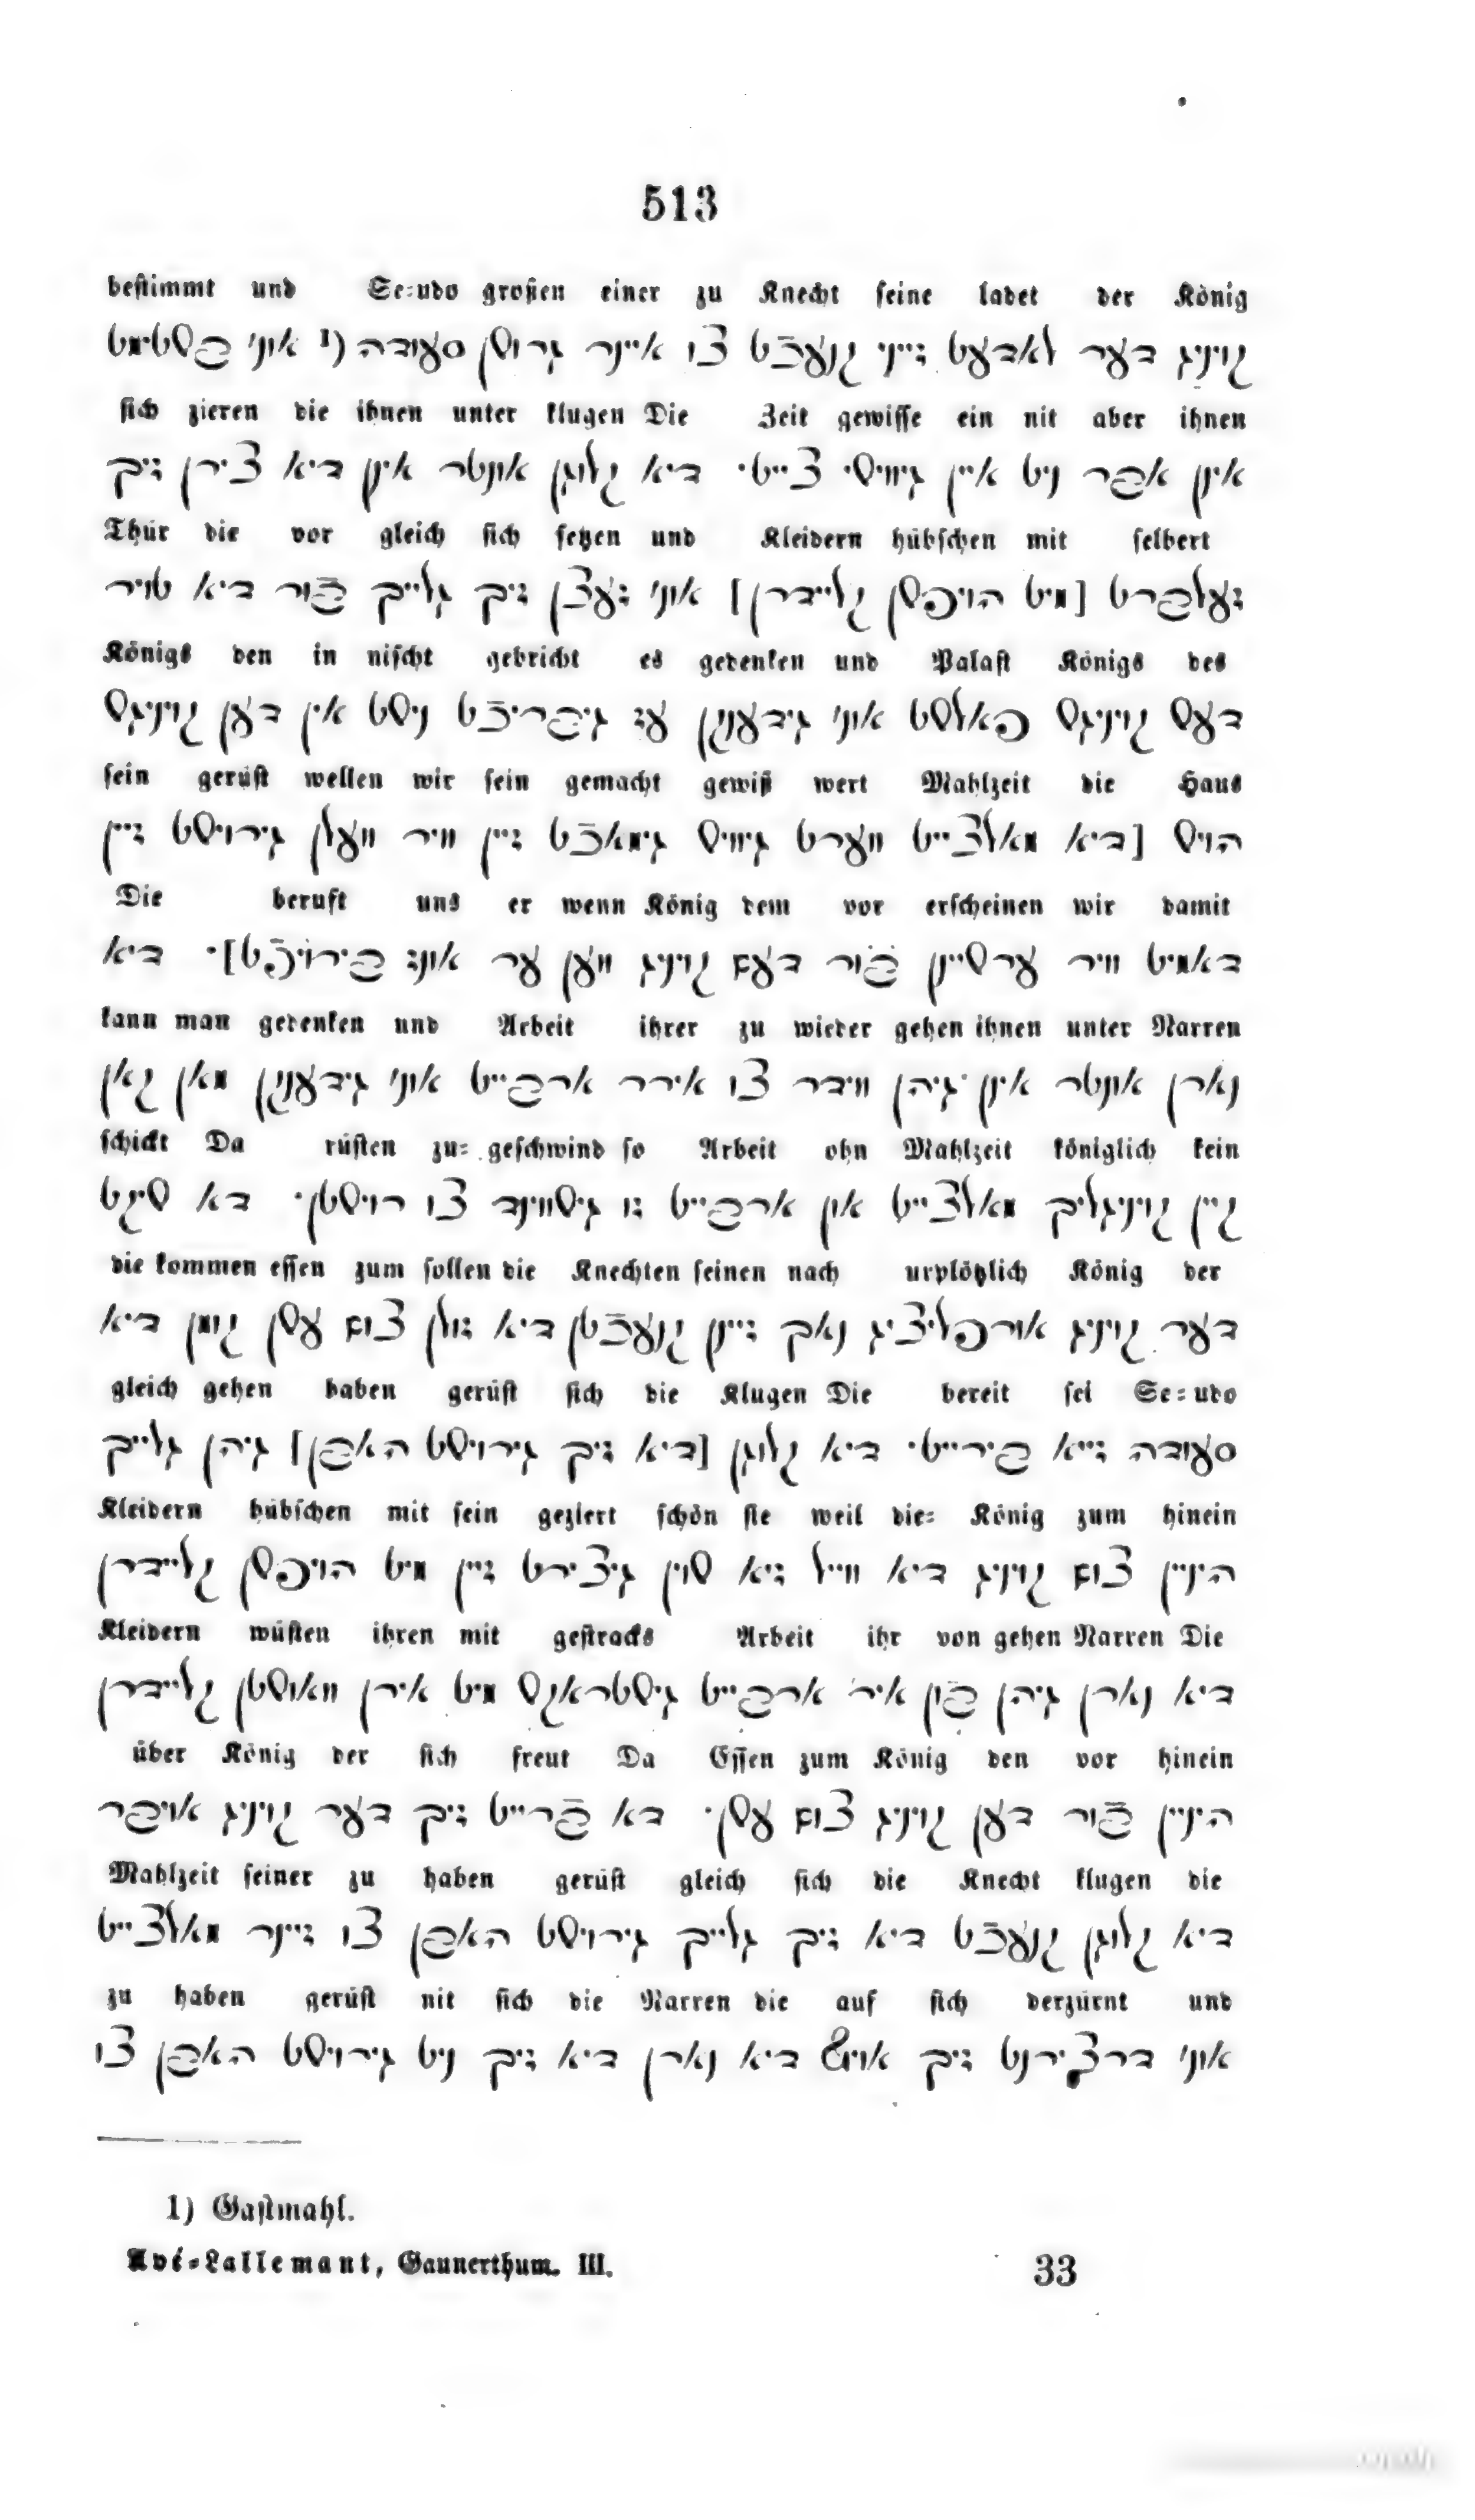 513
bestimmt und Se=udo großen einer zu Knecht seine ladet der König
קויניג דער לאדעט זייני קנעכֿט צו איינר גרושן סעודה (1 אונ' בשטימט
sich zieren die ihnen unter klugen Die Zeit gewisse ein nit aber ihnen
אינן אבר ניט איין גיוויש' צייט· דיא קלוגן אונטר אינן דיא צירן זיך
Thür die vor gleich sich setzen und Kleidern hübschen mit selbert
זעלברט [מיט הויפשן קליידרן] אונ' זעצן זיך גלייך בֿור דיא טויר
Königs den in nischt gebricht es gedenken und Palast Königs des
דעש קויניגש פאלשט אונ' גידענקן עז גיבריכֿט נישט אין דען קויניגש
sein gerüst wellen wir sein gemacht gewiß wert Mahlzeit die Haus
הויש [דיא מאלצייט ווערט גיוויש גימאכֿט זיין וויר וועלן גירוישט זיין
Die beruft uns er wenn König dem vor erscheinen wir damit
דאמיט וויר ערשיינן בֿור דעם קויניג ווען ער אונז בירויפֿט]· דיא
kann man gedenken und Arbeit ihrer zu wieder gehen ihnen unter Narren
נארן אונטר אינן גיהן ווידר צו אירר ארבייט אונ' גידענקן מאן קאן
schickt Da rüsten zu= geschwind so Arbeit ohn Mahlzeit königlich kein
קיין קויניגליך מאלצייט און ארבייט זו גישווינד צו רוישטן· דא שיקט
die kommen essen zum sollen die Knechten seinen nach urplötzlich König der
דער קויניג אורפליציג נאך זיינן קנעכֿטן דיא זולן צום עשן קומן דיא
gleich gehen haben gerüst sich die Klugen Die bereit sei Se=udo
סעודה זייא בירייט· דיא קלוגן [דיא זיך גירוישט האבן] גיהן גלייך
Kleidern hübschen mit sein geziert schön sie weil die= König zum hinein
היניין צום קויניג דיא ווייל זיא שוין גיצירט זיין מיט הויפשן קליידרן
Kleidern wüsten ihren mit gestracks Arbeit ihr von gehen Narren Die
דיא נארן גיהן בֿון איר ארבייט גישטראקש מיט אירן וואושטן קליידרן
über König der sich freut Da Essen zum König den vor hinein
היניין בֿור דען קויניג צום עשן· דא בֿרייט זיך דער קויניג אויבר
Mahlzeit seiner zu haben gerüst gleich sich die Knecht klugen die
דיא קלוגן קנעכֿט דיא זיך גלייך גירוישט האבן צו זיינר מאלצייט
zu haben gerüst nit sich die Narren die auf sich derzürnt und
אונ' דרצירנט זיך אויף דיא נארן דיא זיך ניט גירוישט האבן צו
1) Gastmahl.
Avé=Lallemant, Gaunerthum. III. 33